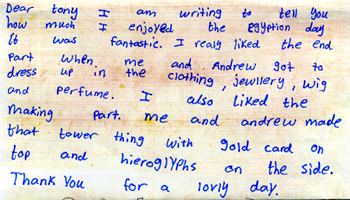 Dear tony I am writing to tell you
how much I enjoyed the egyption day
It was fantastic. I realy liked the end
part when me and Andrew got to
dress up in the clothing, jewllery, wig
and perfume. I also liked the
making part. me and andrew made
that tower thing with gold card on
top and hieroglyphs on the side.
Thank You for a lovly day.